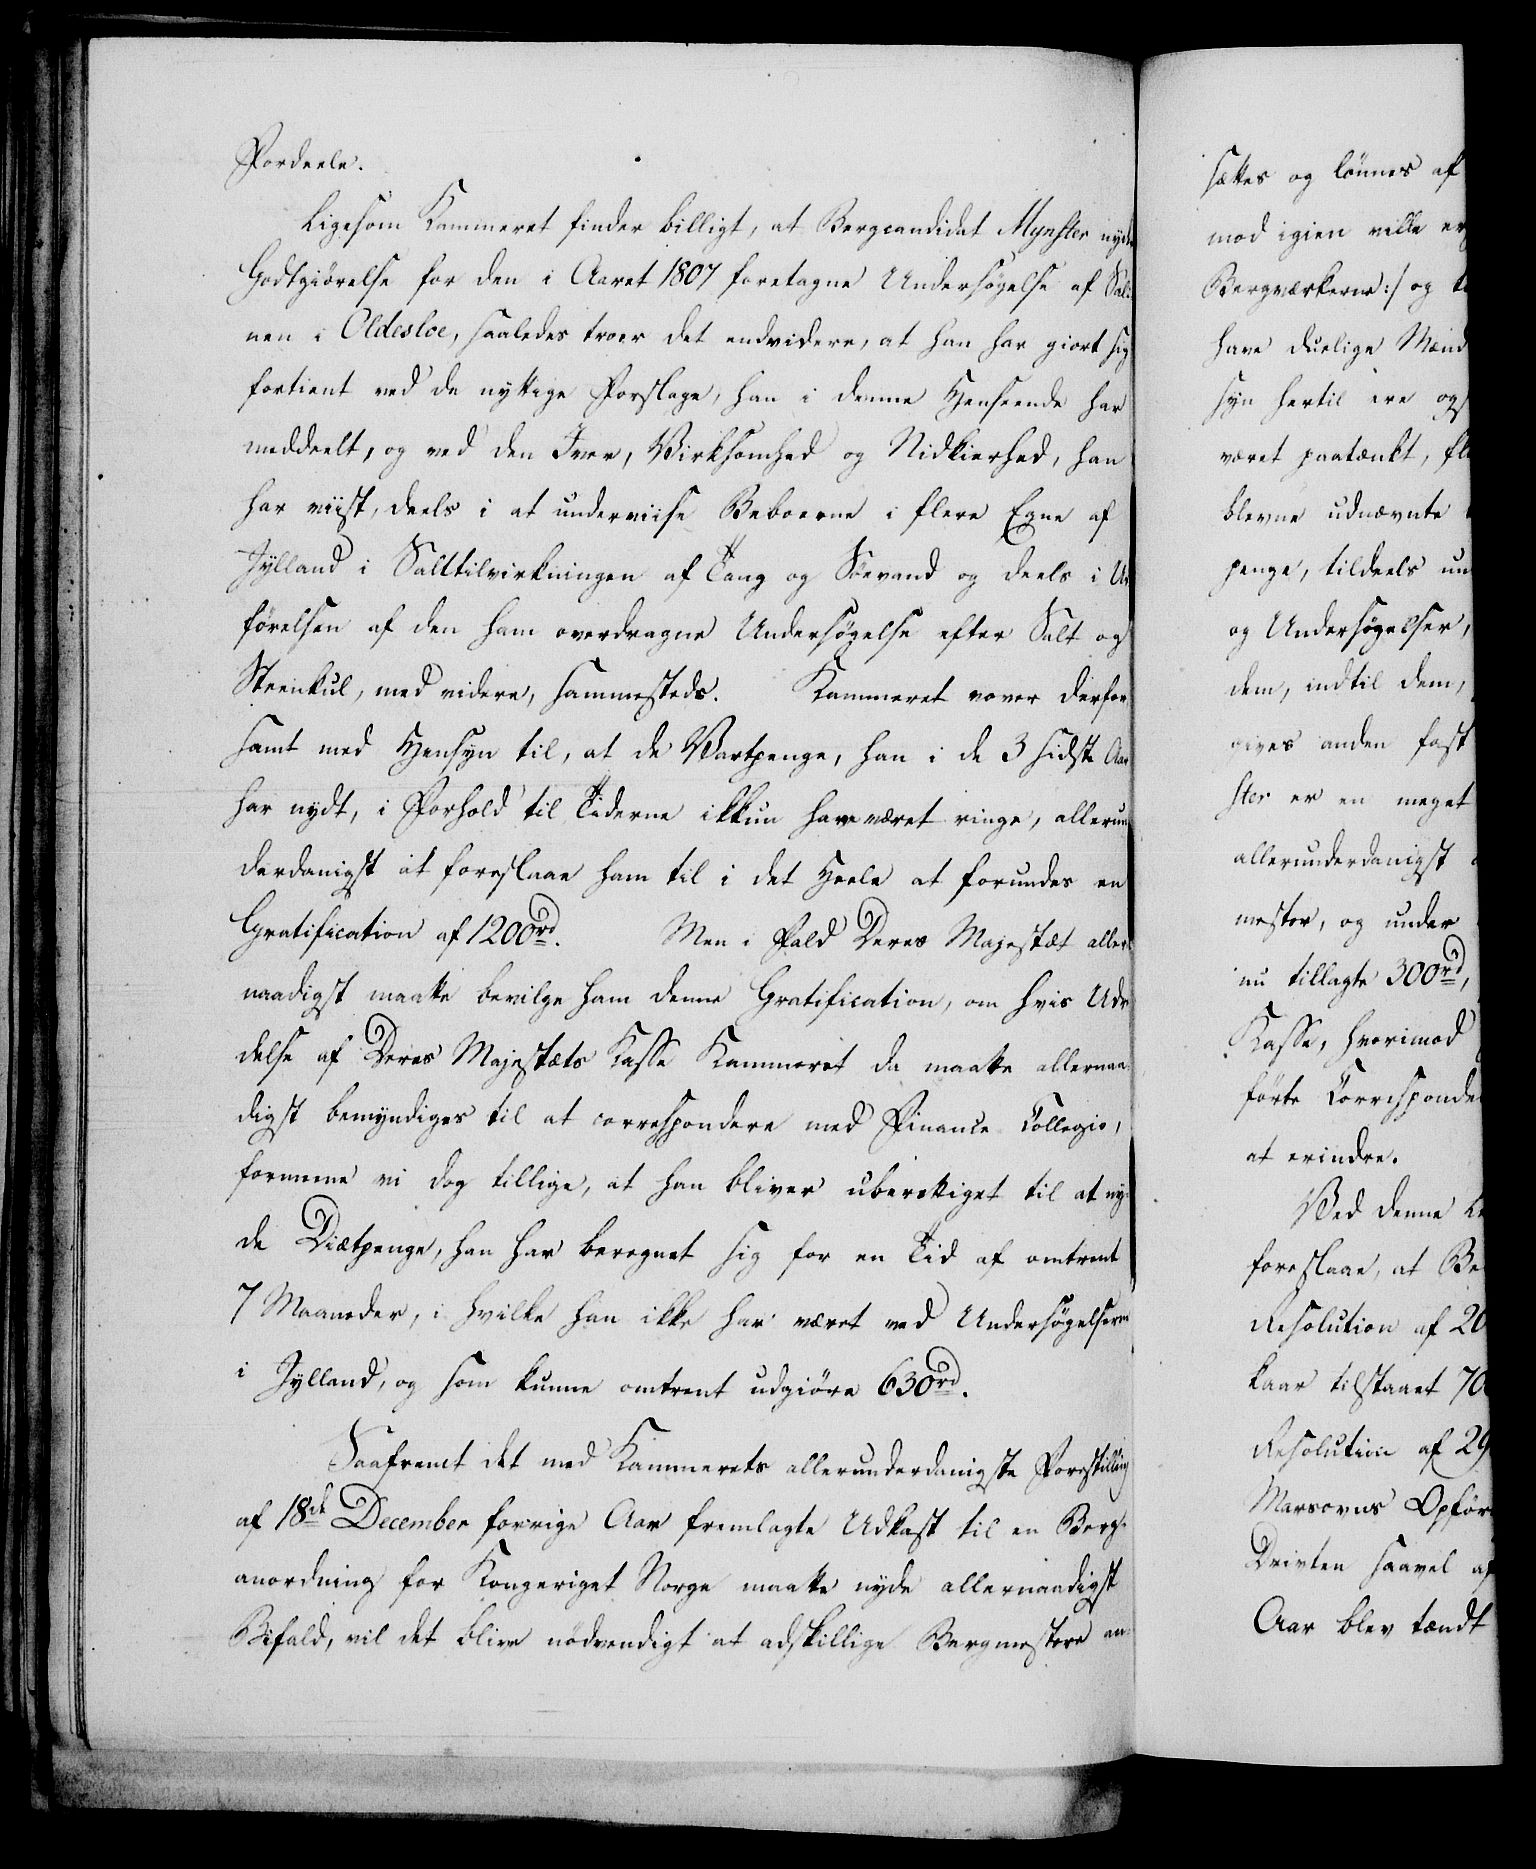 Fordeele.
Ligesom Kammeret finder billigt, at Bergcandidat Mynster nyde
Godtgiörelse for den i Aaret 1807 foretagne Undersögelse af Sali-
nen i Oldesloe, saaledes troer det endvidere, at han har giort sig
fortient ved de nyttige Forslage, han i denne Henseende har
meddeelt, og ved den Iver, Virksomhed og Nidkierhed, han
har viist, deels i at underviise Beboerne i flere Egne af
Jylland i Salttilvirkningen af Tang og Söevand og deels i Ud
förelsen af den ham overdragne Undersögelse efter Salt og
Steenkul, med videre, sammesteds. Kammeret vover derfor
samt med Hensyn til, at de Vartpenge, han i de 3 sidste Aar
har nydt, i Forhold til Tiderne ikkun have været ringe, allerun
derdanigst at foreslaae ham til i det Heele at forundes en
Gratification af 1200rd. Men i Fald Deres Majestæt aller-
naadigst maatte bevilge ham denne Gratification, om hvis Udre
delse af Deres Majestæts Kasse Kammeret da maatte allernaa-
digst bemyndiges til at correspondere med Finance Collegio,
formene vi dog tillige, at han bliver uberettiget til at ny-
de Diætpenge, han har beregnet sig for en Tid af omtrent
7 Maaneder, i hvilke han ikke har været ved Undersögelserne
i Jylland, og som kunne omtrent udgiöre 630rd.
Saafremt det med Kammerets allerunderdanigste Forestilling
af 18de December forrige Aar fremlagte Udkast til en Berg-
anordning for Kongeriget Norge maatte nyde allernaadigst
Bifald, vil det blive nödvendigt at adskillige Bergmestere an-
sættes og lönnes af
mod igien ville er
Bergværkerne:/ og t
have duelige Mænd
syn hertil ere ogs
været paatænkt, fl
blevne udnævnte
penge, tildeels un
og Undersögelser,
dem, indtil dem,
gives anden fast
ster er en meget
allerunderdanigst
mester, og under
nu tillagte 300rd,
Kasse, hvorimod
förte Corresponde
at erindre.
Ved denne Le
foreslaae, at Be
Resolution af 20
kaar tilstaaet 70
Resolution af 29
Masovns Opför
Driften saavel af
Aar blev tændt